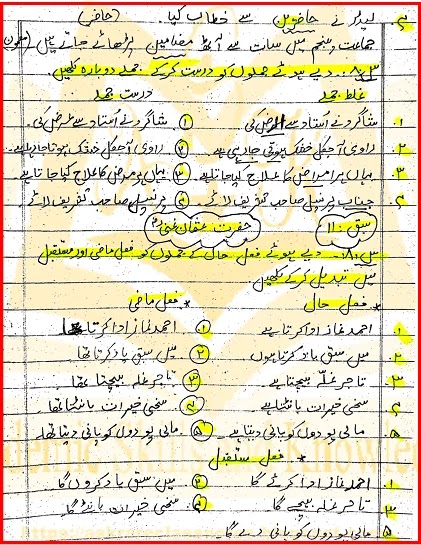 ۴ لیڈر نے حاضرین سے خطاب کیا۔ (حاضر)
جماعت پنجم میں سات سے آٹھ مضامین پڑھائے جاتے ہیں (مضمون)
س۸:۔ دیے ہوئے جملوں کو درست کرکے جملے دوبارہ لکھیں
غلط جملے درست جملے
۱۔ شاگرد نے استاد سے العرض کی ① شاگرد نے استاد سے عرض کی
۲۔ راوی آجکل خشک ہوتی جارہی ہے ② راوی آجکل خشک ہوتا جا رہا ہے۔
۳۔ یہاں ہر امراض کا علاج کیا جاتا ہے۔ ③ یہاں ہر مرض کا علاج کیا جاتا ہے
۴۔ جناب پرنسپل صاحب تشریف لائے۔ ④ پرنسپل صاحب تشریف لائے
سبق:۱۱ حضرت عثمان غنیؓ
س۱۰:۔ دیے ہوئے فعل حال کے جملوں کو فعل ماضی اور مستقبل
میں تبدیل کرکے لکھیں۔
* فعل حال * فعل ماضی
۱۔ احمد نماز ادا کرتا ہے ① احمد نماز ادا کرتا تھا
۲۔ میں سبق یاد کرتا ہوں ② میں سبق یاد کرتا تھا
۳۔ تاجر غلّہ بیچتا ہے۔ ③ تاجر غلہ بیچتا تھا
۴۔ سخی خیرات بانٹتا ہے ④ سخی خیرات بانٹتا تھا
۵۔ مالی پودوں کو پانی دیتا ہے۔ ⑤ مالی پودوں کو پانی دیتا تھا۔
* فعل مستقبل
۱۔ احمد نماز ادا کرے گا ② میں سبق یاد کروں گا
۳۔ تاجر غلہ بیچے گا ④ سخی خیرات بانٹے گا
۵۔ مالی پودوں کو پانی دے گا۔